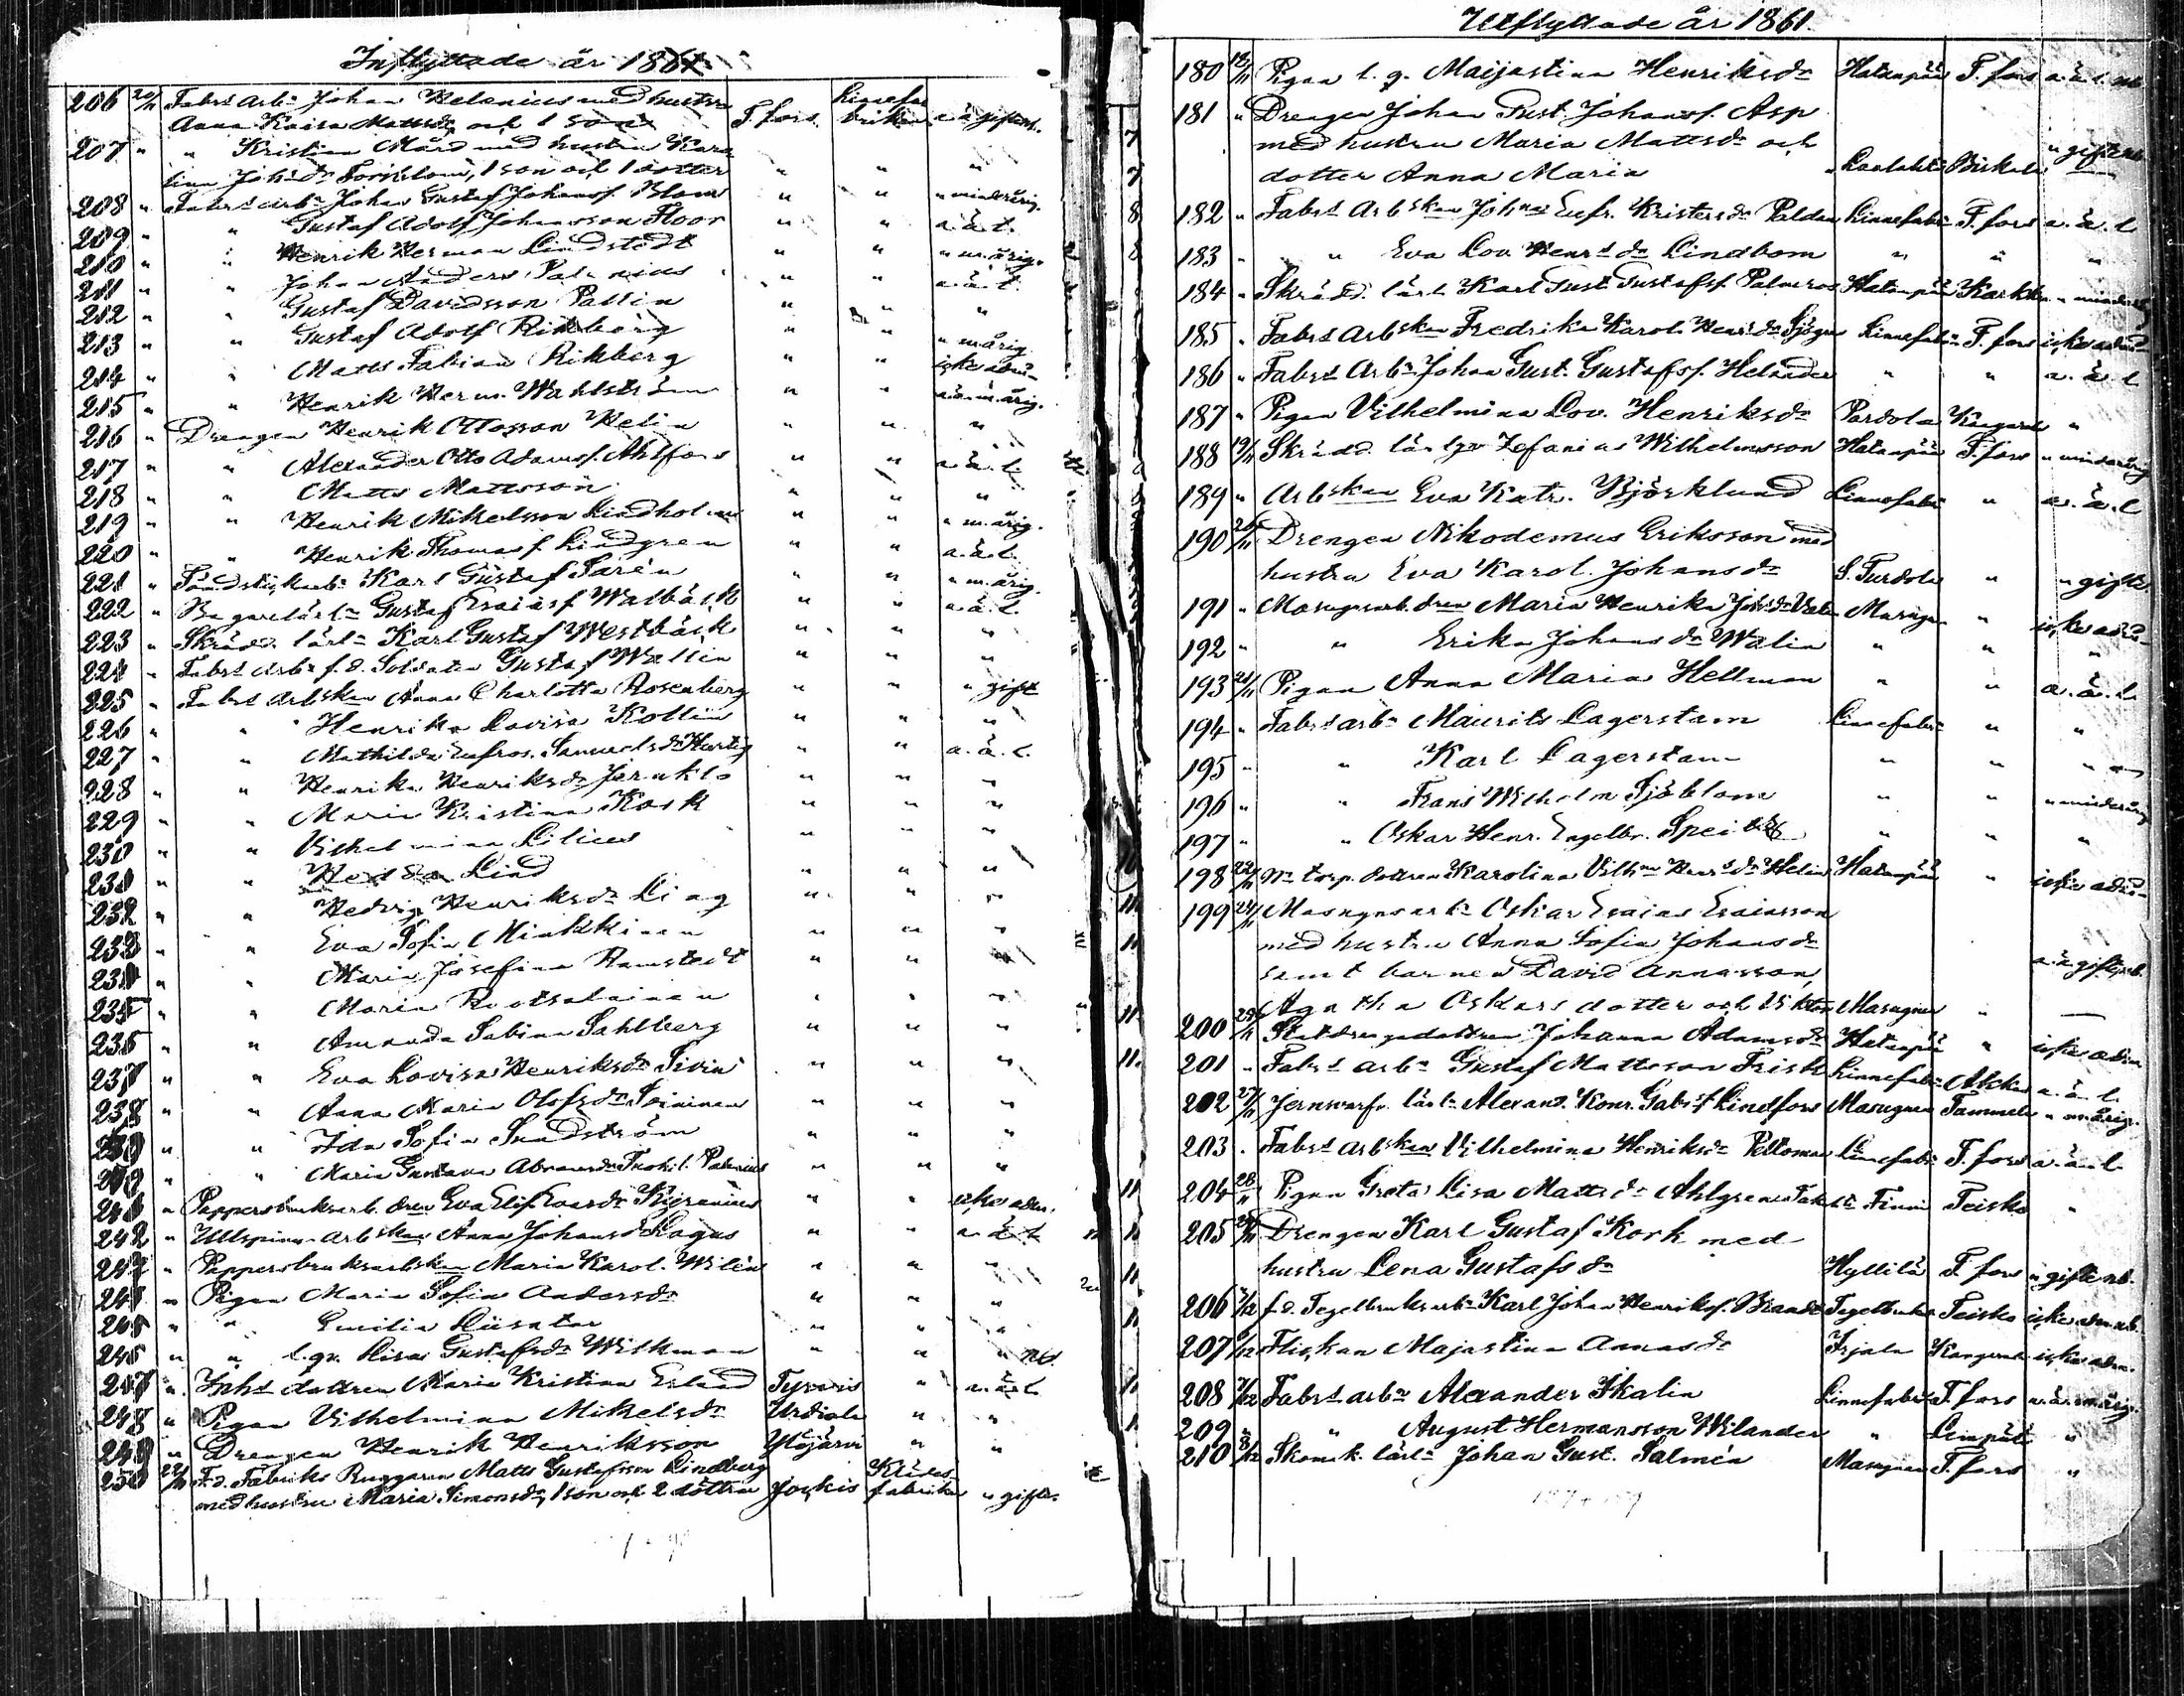 Inflyttade år 1861
206 20/11 Fabrs arbn Johan Helenius med hustru T.fors. Linnefa
Anna Kaisa Mattsdr och 1 son briken a.ä. gifta.
207 " " Kristian Mård med hustru Karo
lina Johsdr 1 son och 1 dotter " " "
208 " Fabrs arbn Johan Gustaf Johanss. Blom " " " minderårig.
209 " " Gustaf Adolf Johansson Floor " " a.ä.l.
210 " " Henrik Herman Lindstedt " " " m.årig.
211 " " Johan Anders " " a.ä.l.
212 " " Gustaf Davidsson Pallin " " "
213 " " Gustaf Adolf Rikberg " " " m.årig
214 " " Matts Fabian Rikberg " " icke adm.
215 " " Henrik Herm. Wahlström " " a.ä. m.årig.
216 " Drengen Henrik Ottosson Helin " " "
217 " " Alexander Otto Adamss. Ahlfors " " a.ä.l.
218 " " Matts Mattsson " " "
219 " " Henrik Mikelsson Lindholm " " " m.årig.
220 " " Henrik Thomass. Lindgren " " a.ä.l.
221 " Karl Gustaf Sarén " " " m.årig.
222 " Bagarelärln Gustaf Esaiass. Walbäck " " a.ä.l.
223 " Skrädd. lärln Karl Gustaf Westbäck " " "
224 " Fabrs arbn f.d. Soldaten Gustaf Wallin " " "
225 " Fabrs arbskan Anna Charlotta Rosenberg " " " gift
226 " " Henrika Lovisa Kollin " " "
227 " " Mathilda Eufros. Samuelsdr Hurtig " " a.ä.l.
228 " " Henrika Henriksdr Jernklo " " "
229 " " Maria Kristina Kask " " "
230 " " Vilhelmina Lilius " " "
231 " " Hedda Lind " " "
232 " " Hedvig Henriksdr Ling " " "
233 " " Eva Sofia Minkkinen " " "
234 " " Maria Josefina Ramstedt " " "
235 " " Maria Ruotsalainen " " "
236 " " Amanda Sabina Sahlberg " " "
237 " " Eva Lovisa Henriksdr Sivin " " "
238 " " Anna Maria Olofsdr Soininen " " "
239 " " Ida Sofia Sundström " " "
240 " " Maria Gustava Abramsdr " " "
241 " Pappersbruksarb. dren Eva Elis. " " icke adm.
242 " Ullspinn. arbskan Anna Johansdr Lagus " " a.ä.l.
243 " Pappersbruksarbskan Maria Karol. Wilén " " "
244 " Pigan Maria Sofia Andersdr " " "
245 " " Emilia " " "
246 " " l.gr. Lisa Gustafsdr Wilkman " " " nb.
247 " Inhs dottren Maria Kristina Erland Tyrvis " a.ä.l.
248 " Pigan Vilhelmina Mikelsdr Urdiala " "
249 " Drengen Henrik Henriksson Ylöjärvi " "
250 22/11 F.d. Fabriks Ruggaren Matts Gustafsson Lindberg Klädes
med hustru Maria Simonsdr, 1 son och 2 döttrar Jockis fabriken " gifta.
Utflyttade år 1861.
180 18/11 Pigan l.g. Majjastina Henriksdr Hatanpää T.fors a.ä.l. nb
181 " Drengen Johan Gust. Johanss. Asp
med hustru Maria Mattsdr och
dotter Anna Maria Laulahti Birkala " gifta nb
182 " Fabrs arbskan Johna Eufr. Kristersdr Palden Linnefabr. T.fors a.ä.l
183 " " Eva Lov. Henrsdr Lindbom " " "
184 " Skrädd. lärl. Karl Gust. Gustafss. Palmroos Hatanpää Karkku " minderårig
185 " Fabrs arbskan Fredrika Karol. Henrsdr Sjögren Linnefabr. T.fors icke adm.
186 " Fabrs Arbn Johan Gust. Gustafss. Helander " " a.ä.l
187 " Pigan Vilhelmina Lov. Henriksdr Pardola Kangasala "
188 19/11 Skrädd. Zefanias Wilhelmsson Hatanpää T.fors " minderårig
189 " Arbskan Eva Katr. Björklund Linnefabr. " a.ä.l
190 20/11 Drengen Nikodemus Eriksson med
hustru Eva Karol. Johansdr S. Turdola " " gifta.
191 " Masugnsarb. dren Maria Henrika Johsdr Masugn. " icke adm.
192 " " Erika Johansdr Walin " " "
193 21/11 Pigan Anna Maria Hellman " " a.ä.l.
194 " Fabrs arbn Maurits Lagerstam Linnefabr. " "
195 " " Karl Lagerstam " " "
196 " " Frans Wilhelm Sjöblom " " " minderårig
197 " " Oskar Henr. Engelbr. " " "
198 22/11 Torp. dottren Karolina Vilhna Henrsdr Helin Hatanpää " icke adm.
199 24/11 Masugnsarbn Oskar Esaias Esaiasson
med hustru Anna Sofia Johansdr
samt barnen David Annasson, a.ä. gifta nb.
Agatha Oskarsdotter och Viktor Masugnen " —
200 25/11 Statdrengsdottren Johanna Adamsdr Hatanpää " icke adm.
201 " Fabrs arbn Gustaf Mattsson Frisk Linnefabr. a.ä.l.
202 27/11 Jernsvarfv. lärln Alexand. Konr. Gabrs. Lindfors Masugnen Tammela " m.årig.
203 " Fabrs arbskan Vilhelmina Henriksdr Peltoman Linnefabr. T.fors a.ä.l.
204 28/11 Pigan Greta Lisa Mattsdr Ahlgren Teisko "
205 29/11 Drengen Karl Gustaf Kork med
hustru Lena Gustafsdr Hyllilä T.fors " gifta nb.
206 3/12 f.d. Tegelbruksarbn Karl Johan Henrikss. Brandt Tegelbruket Teisko icke adm. nb.
207 6/12 Flickan Majastina Annasdr Irjala Kangasala icke adm.
208 7/12 Fabrs arbn Alexander Skalin Linnefabr. T.fors a.ä. m.årig.
209 " " August Hermansson Wilander " Lempäälä "
210 8/12 Skomk. lärln Johan Gust. Salmén Masugnen T.fors "